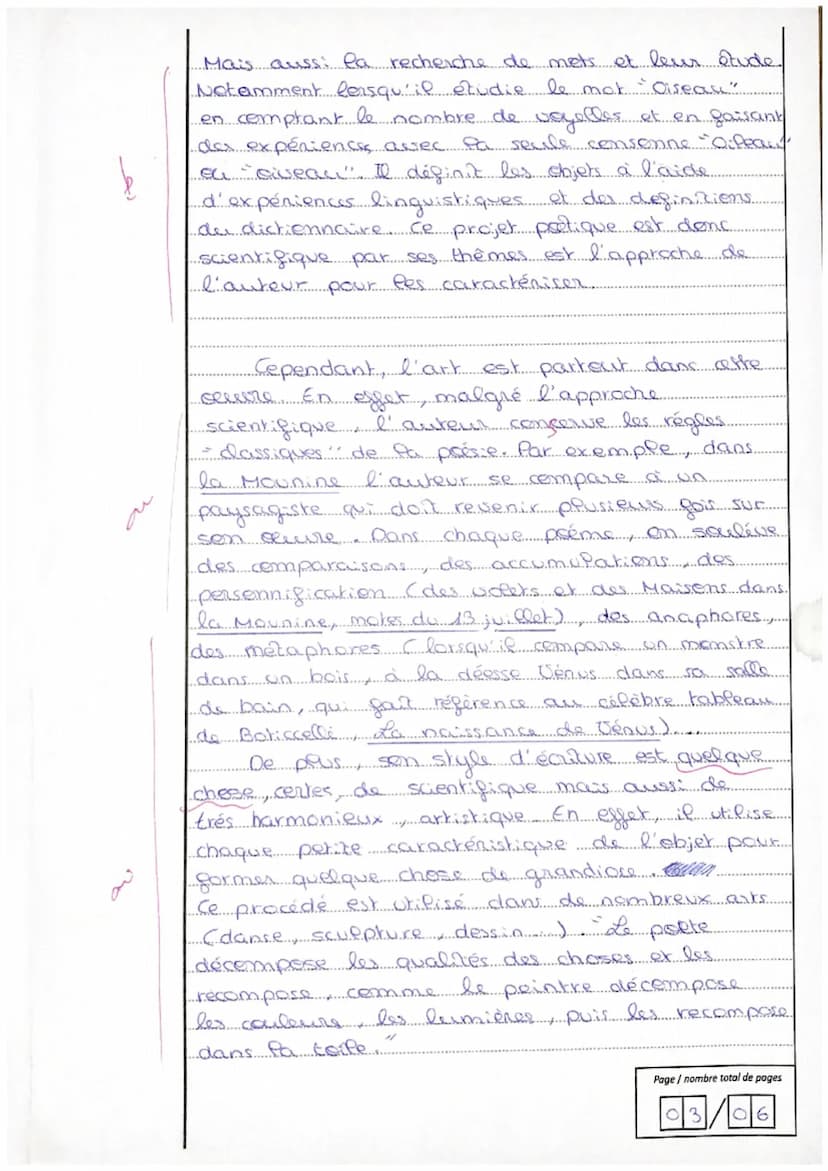 Mais aussi la recherche de mots et leur étude.
Notamment lorsqu'il étudie le mot "Oiseau"
en comptant le nombre de voyelles et en faisant
des expériences avec la seule consonne "Oileau"
ou "oiveau". Il définit les objets à l'aide
d'expériences linguistiques et des definitions
du dictionnaire. Ce projet poétique est donc
scientifique par ses thèmes est l'approche de
l'auteur pour les caractériser.
Cependant, l'art est partout dans cette
oeuvre. En effet, malgré l'approche
scientifique, l'auteur conserve les régles
"classiques" de la poésie. Par exemple, dans
la Mounine l'auteur se compare à un
paysagiste qui doit revenir plusieurs fois sur
son oeuvre. Dans chaque poème, on soulève
des comparaisons, des accumulations, des
personnification (des volets et des Maisons dans
la Mounine, notes du 13 juillet), des anaphores,
des métaphores (lorsqu'il compare un monstre
dans un bois, à la déesse Vénus dans sa salle
de bain, qui fait référence au célèbre tableau
de Boticcelli, La naissance de Vénus)....
De plus, son style d'écriture est quelque
chose, certes, de scientifique mais aussi de
trés harmonieux, artistique. En effet, il utilise
chaque petite caractéristique de l'objet pour
former quelque chose de grandiose.
Ce procédé est utilisé dans de nombreux arts
(danse, sculpture, dessin...). "Le poète
décompose les qualités des choses et les
recompose, comme le peintre décompose
les couleurs, les lumières, puis les recompose
dans la toile."
Page / nombre total de pages
03/06